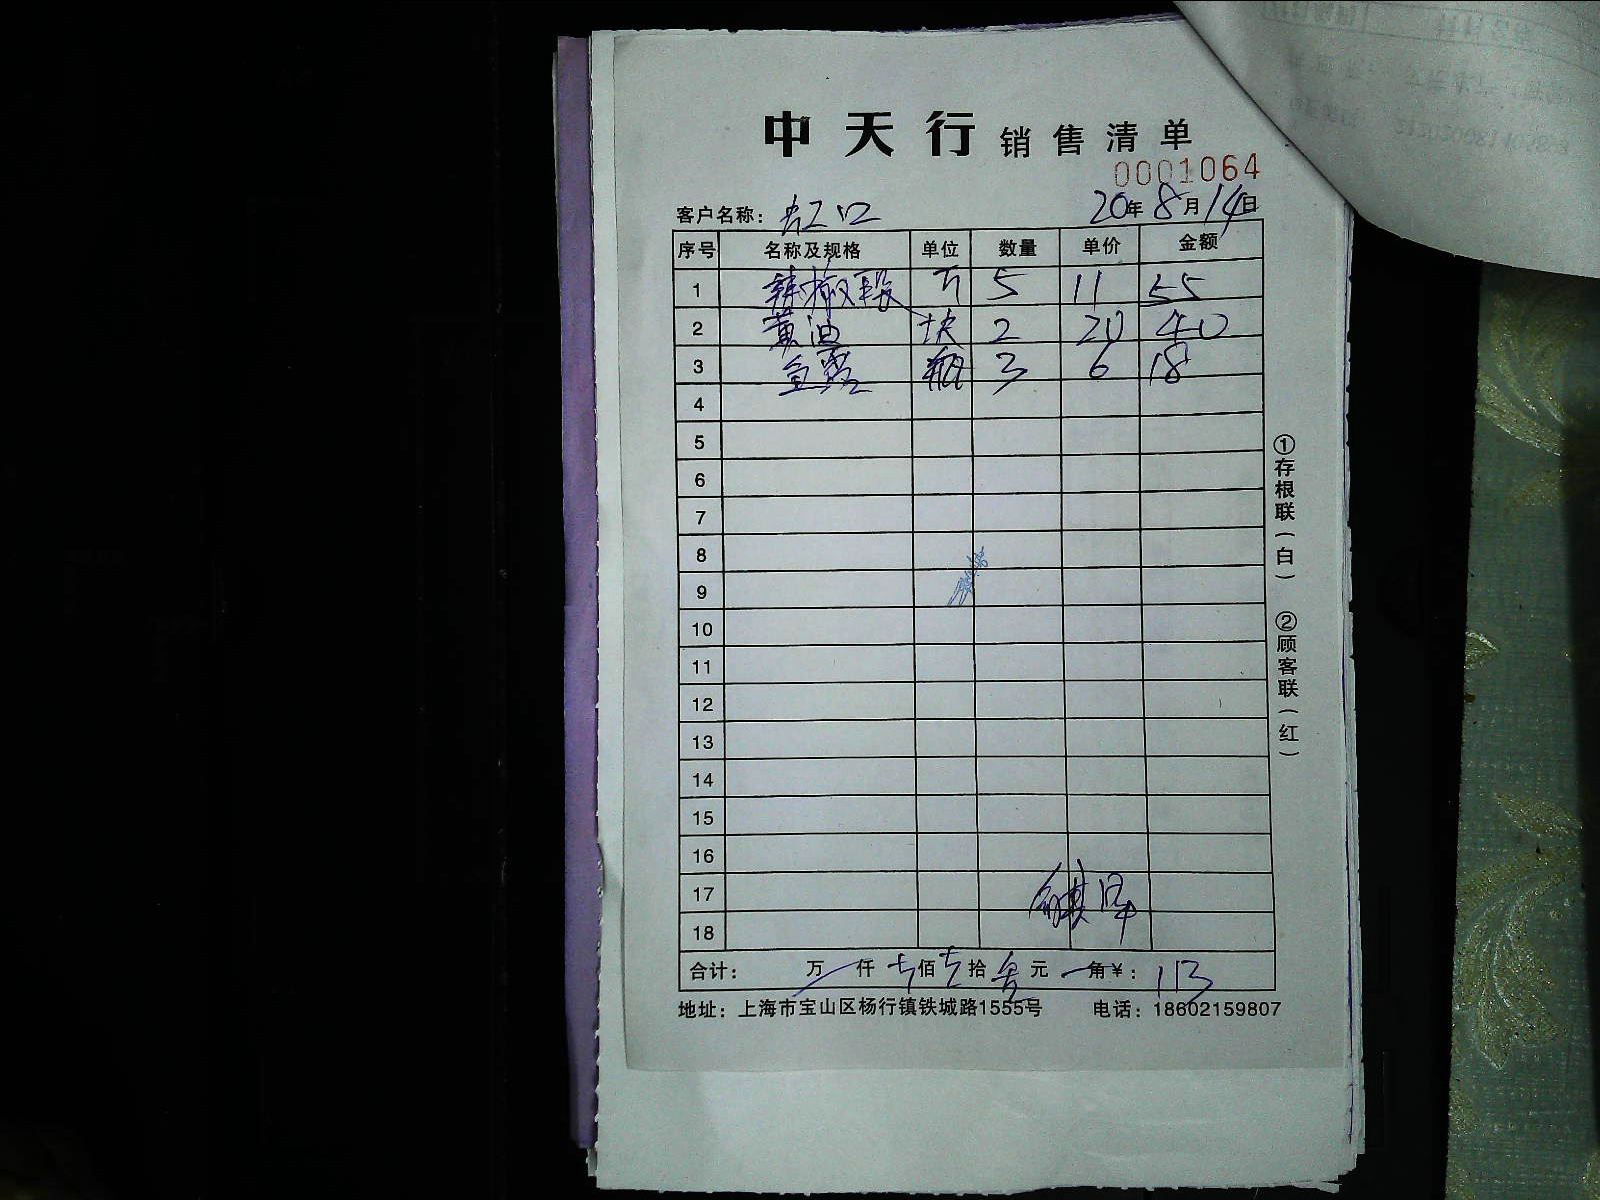 中天行 销售清单
0001064
客户名称: 虹口 20年8月14日
序号 名称及规格 单位 数量 单价 金额
1 辣椒段 斤 5 11 55
2 黄油 块 2 20 40
3 鱼露 瓶 3 6 18
4
5
6
7
8
9
10
11
12
13
14
15
16
17
18
合计: 万 仟 佰 拾 元 角 ¥: 113
地址: 上海市宝山区杨行镇铁城路1555号 电话: 18602159807
①存根联(白) ②顾客联(红)